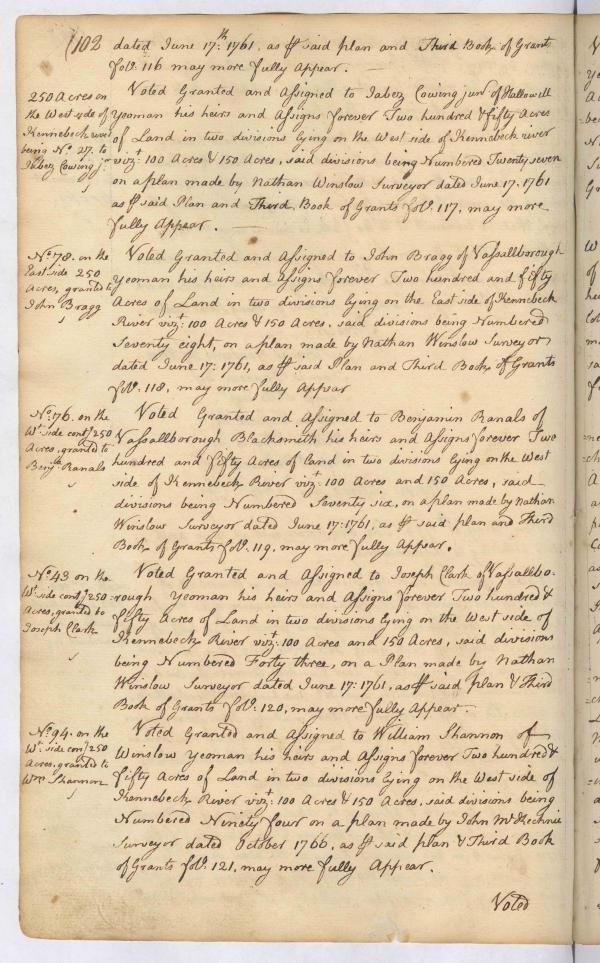 (102 dated June 17th: 1761, as ⅌ said plan and Third Book of Grants
fol: 116 may more fully Appear.
250 Acres on
the West side of
Kennebeck river
being No. 27. to
Jabez Cowing jr.
Voted Granted and Assigned to Jabez Cowing junr of Hallowell
Yeoman his heirs and Assigns forever Two hundred & fifty Acres
of Land in two divisions lying on the West side of Kennebeck river
vizt: 100 Acres & 150 Acres, said divisions being Numbered Twenty seven
on a plan made by Nathan Winslow Surveyor dated June 17: 1761
as ⅌ said Plan and Third Book of Grants fol: 117, may more
fully Appear.
No. 78. on the
East side 250
Acres, granted to
John Bragg
Voted Granted and Assigned to John Bragg of Vassallborough
Yeoman his heirs and assigns forever Two hundred and fifty
Acres of Land in two divisions lying on the East side of Kennebeck
River vizt: 100 Acres & 150 Acres, said divisions being Numbered
Seventy eight, on a plan made by Nathan Winslow Surveyor
dated June 17: 1761, as ⅌ said Plan and Third Book of Grants
fol: 118, may more fully Appear
No. 76. on the
Wt. side contg 250
Acres, granted to
Benja. Ranals
Voted Granted and Assigned to Benjamin Ranals of
Vassallborough Blacksmith his heirs and Assigns forever Two
hundred and fifty Acres of land in two divisions lying on the West
side of Kennebeck River vizt: 100 Acres and 150 Acres, said
divisions being Numbered Seventy six, on a plan made by Nathan
Winslow Surveyor dated June 17: 1761, as ⅌ said plan and Third
Book of Grants fol: 119, may more fully Appear.
No. 43 on the
Wt. side contg 250
Acres, granted to
Joseph Clark
Voted Granted and Assigned to Joseph Clark of Vassallbo-
rough Yeoman his heirs and Assigns forever Two hundred &
fifty Acres of Land in two divisions lying on the West side of
Kennebeck River vizt: 100 Acres and 150 Acres, said divisions
being Numbered Forty three, on a Plan made by Nathan
Winslow Surveyor dated June 17: 1761, as ⅌ said plan & Third
Book of Grants fol: 120, may more fully Appear.
No. 94. on the
Wt. side cong 250
Acres, granted to
Wm. Shannon
Voted Granted and Assigned to William Shannon of
Winslow Yeoman his heirs and Assigns forever Two hundred &
fifty Acres of Land in two divisions lying on the West side of
Kennebeck River vizt: 100 Acres & 150 Acres, said divisions being
Numbered Ninety four on a plan made by John McKechnie
Surveyor dated October 1766, as ⅌ said plan & Third Book
of Grants fol: 121, may more fully Appear.
Voted